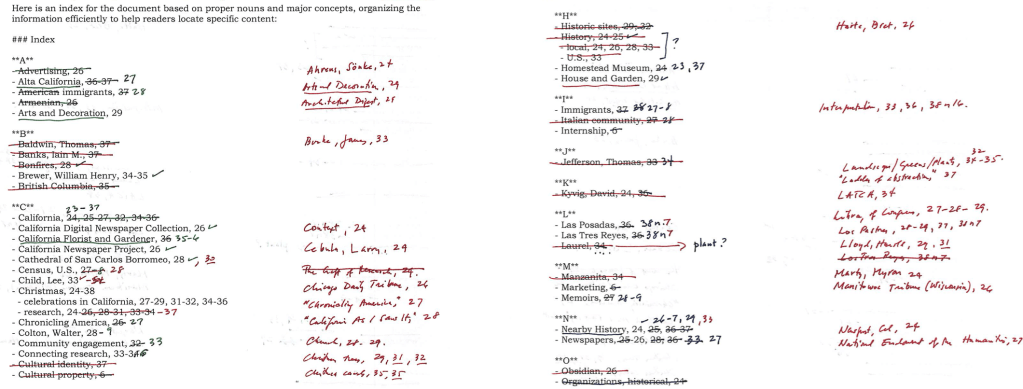 Here is an index for the document based on proper nouns and major concepts, organizing the
information efficiently to help readers locate specific content:
### Index
**A**
- Advertising, 26
- Alta California, 36-37 27
- American immigrants, 37 28
- Armenian, 26
- Arts and Decoration, 29
Ahrens, Sönke, 24
Arts and Decoration, 29
Architectural Digest, 29
**B**
- Baldwin, Thomas, 37
- Banks, Iain M., 37
- Bonfires, 28
- Brewer, William Henry, 34-35
- British Columbia, 35
Burke, James, 33
**C**
23-37
- California, 24, 25-27, 32, 34-36
- California Digital Newspaper Collection, 26
- California Florist and Gardener, 36 35-6
- California Newspaper Project, 26
- Cathedral of San Carlos Borromeo, 28, 30
- Census, U.S., 27-8 28
- Child, Lee, 33
- Christmas, 24-38
- celebrations in California, 27-29, 31-32, 34-36
- research, 24-26, 28-31, 33-34 -37
- Chronicling America, 26 27
- Colton, Walter, 28-9
- Community engagement, 32 33
- Connecting research, 33-3
- Cultural identity, 37
- Cultural property, 6
Context, 24
Cebula, Larry, 29
The Craft of Research, 24
Chicago Daily Tribune, 26
"Chronicling America," 27
"California As I Saw It," 28
Church, 28-29
Christmas trees, 29, 31, 32
Christmas cards, 35, 35
**H**
- Historic sites, 29, 32
- History, 24-25
- local, 24, 26, 28, 33
- U.S., 33
?
- Homestead Museum, 24 23, 37
- House and Garden, 29
Harte, Bret, 26
**I**
- Immigrants, 37 28 27-8
- Italian community, 27 28
- Internship, 6
Interpretation, 33, 36, 38n16.
**J**
- Jefferson, Thomas, 33 34
**K**
- Kyvig, David, 24, 36
**L**
- Las Posadas, 36 38n.7
- Las Tres Reyes, 36 38n7
- Laurel, 34 plant?
32
Landscape/Greens/Plants, 34-35.
"Ladder of abstraction," 37
LATCA, 34
Library of Congress, 27-28-29.
Los Pastores, 28-29, 37, 38n7
Lloyd, Harold, 29, 31
Los Tres Reyes, 38n7
**M**
- Manzanita, 34
- Marketing, 6
- Memoirs, 27 28-9
Marty, Myron 24
Manitowoc Tribune (Wisconsin), 26
**N**
- 26-7, 29, 33
- Nearby History, 24, 25, 36-37
- Newspapers, 25-26, 28, 36-33 27
Newport, Cal, 24
National Endowment of the Humanities, 27
**O**
- Obsidian, 26
- Organizations, historical, 24